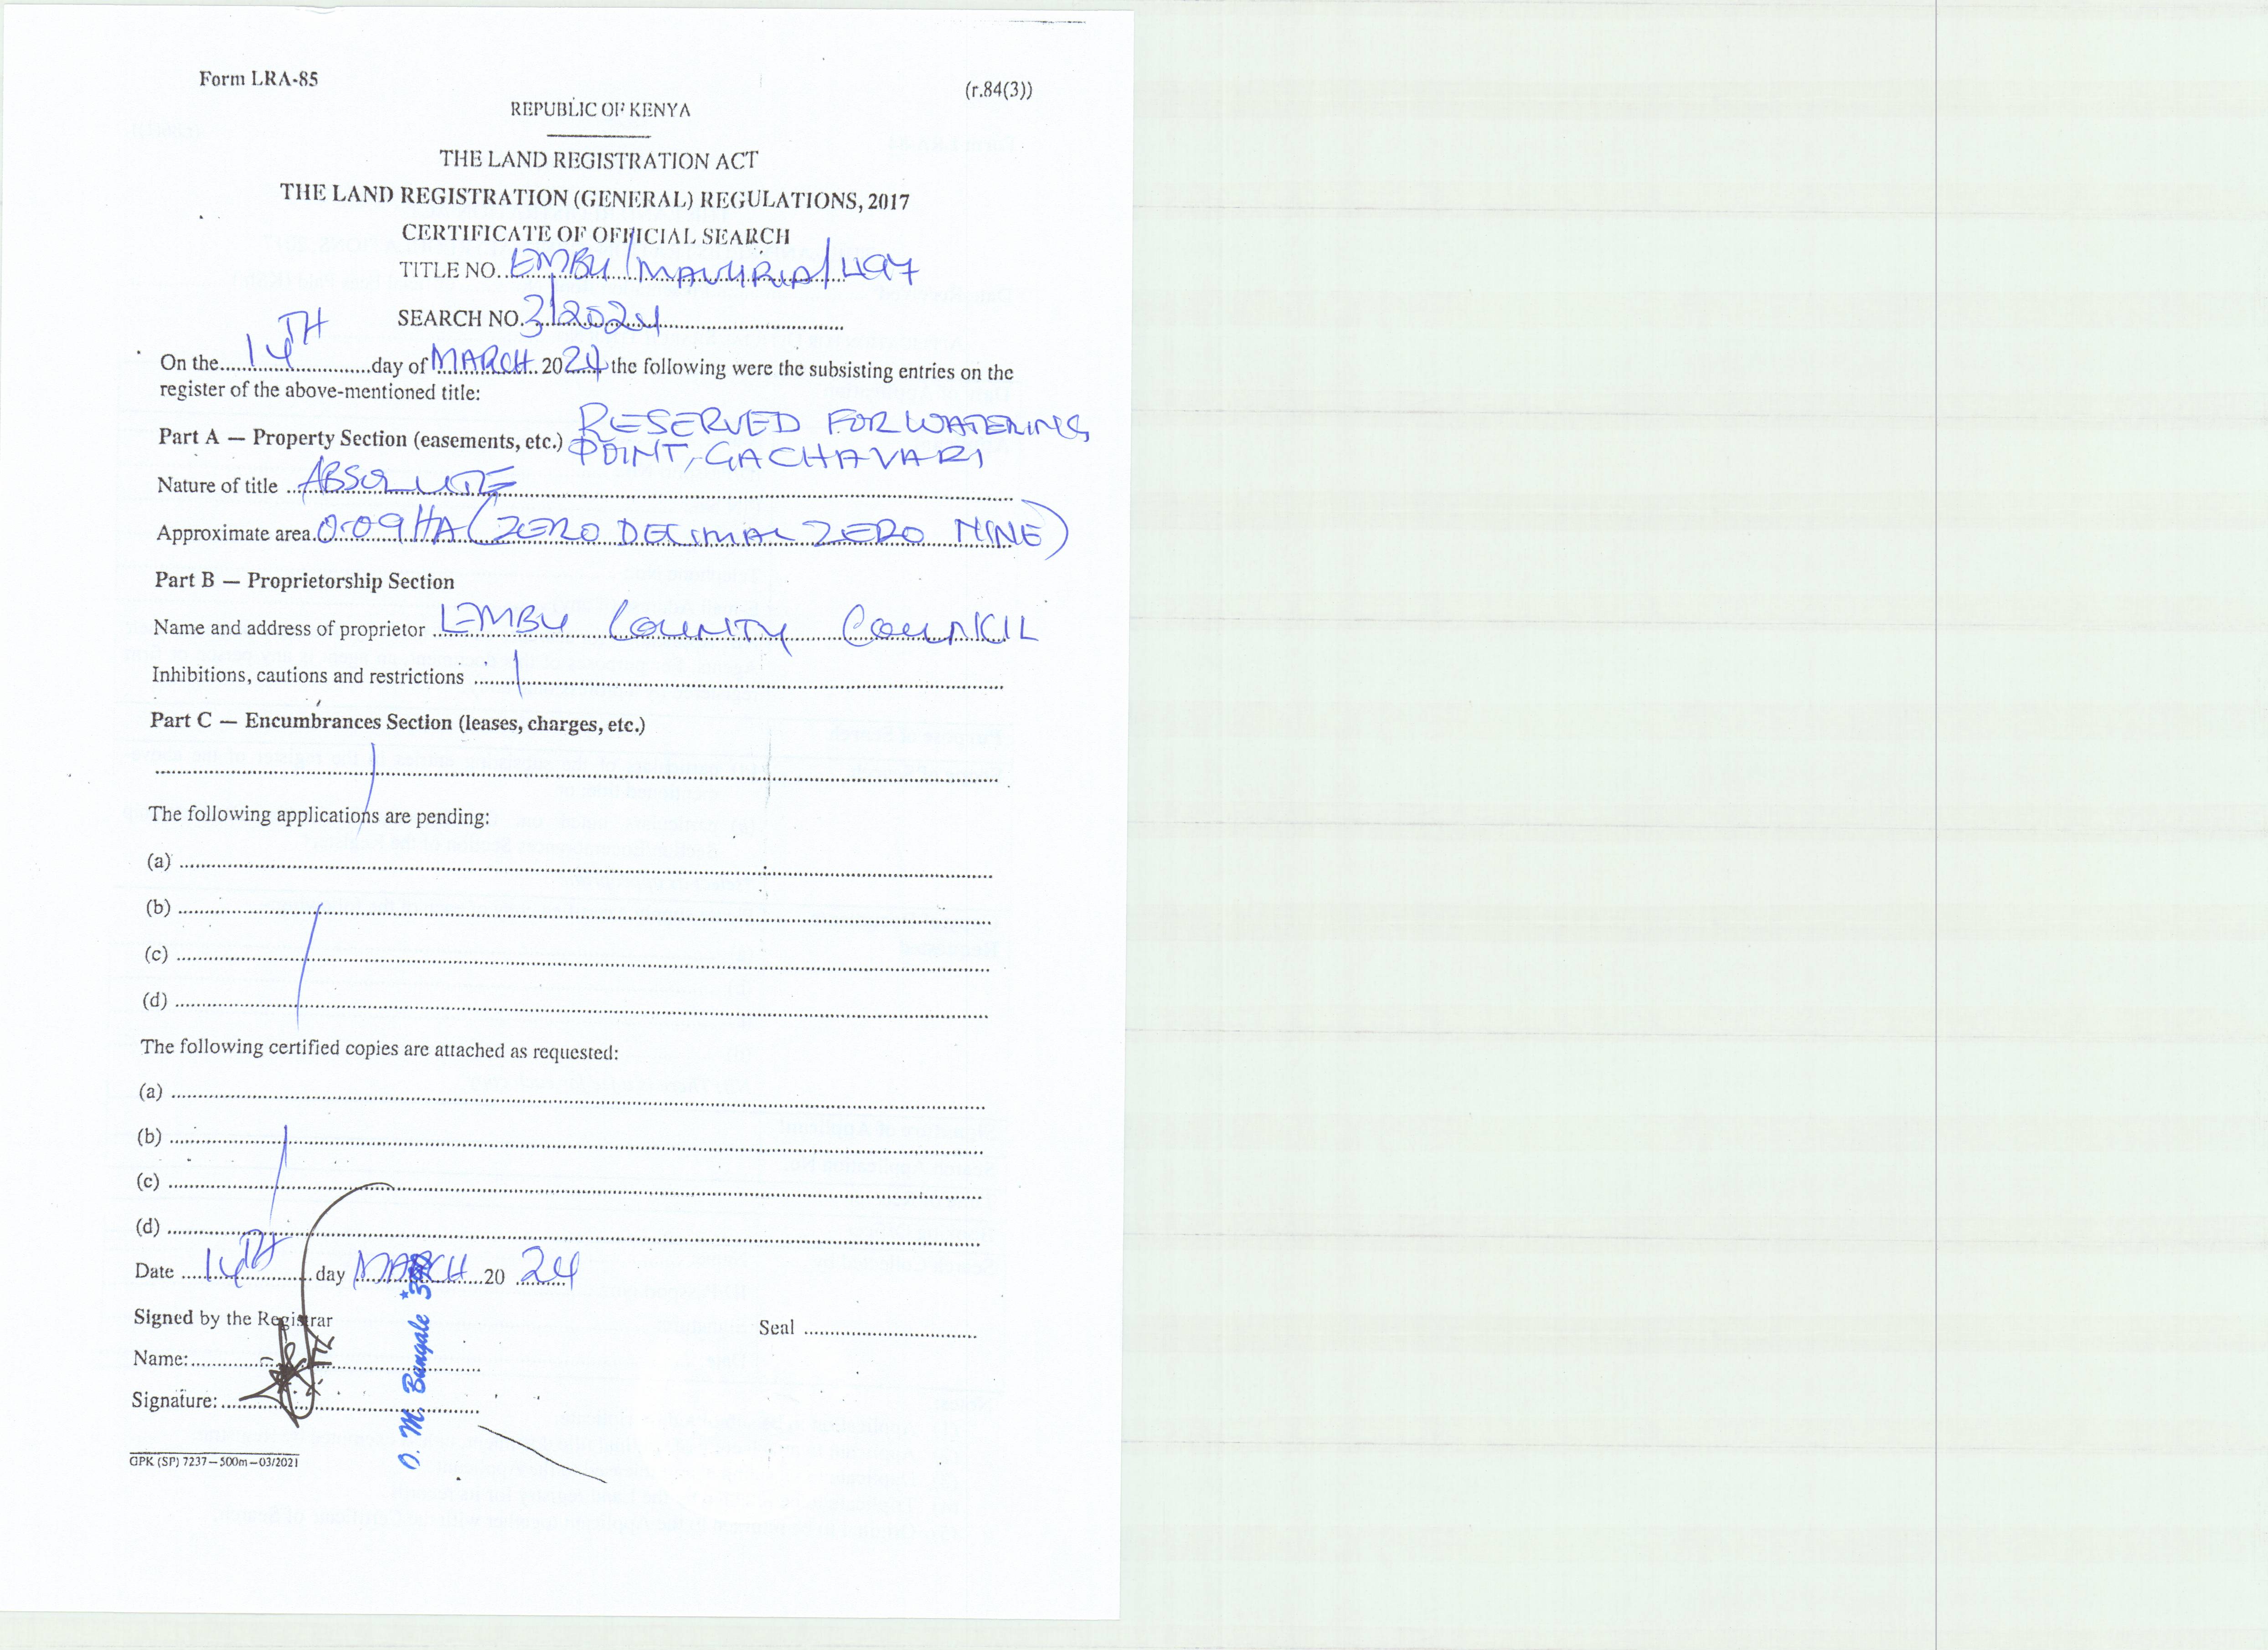 Form LRA-85
(r.84(3))
REPUBLIC OF KENYA
THE LAND REGISTRATION ACT
THE LAND REGISTRATION (GENERAL) REGULATIONS, 2017
CERTIFICATE OF OFFICIAL SEARCH
TITLE NO. EMBU/MAVURIA/497
SEARCH NO. 3/2024
On the 14TH day of MARCH 2024 the following were the subsisting entries on the
register of the above-mentioned title:
Part A — Property Section (easements, etc.) RESERVED FOR WATERING
POINT, GACHAVARI
Nature of title ABSOLUTE
Approximate area 0.09HA (ZERO DECIMAL ZERO NINE)
Part B — Proprietorship Section
Name and address of proprietor EMBU COUNTY COUNCIL
Inhibitions, cautions and restrictions
Part C — Encumbrances Section (leases, charges, etc.)
The following applications are pending:
(a)
(b)
(c)
(d)
The following certified copies are attached as requested:
(a)
(b)
(c)
(d)
Date 14TH day MARCH 20 24
Signed by the Registrar
Seal
Name:
Signature:
O. M. Bungale *
GPK (SP) 7237—500m—03/2021